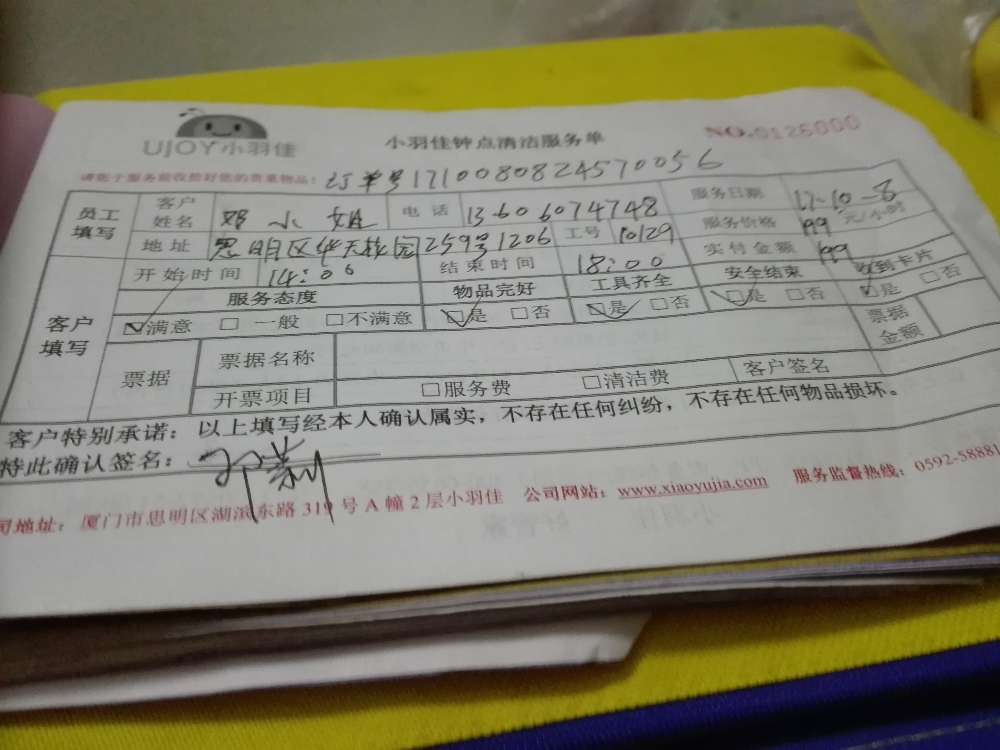 UJOY小羽佳
小羽佳钟点清洁服务单
NO.0126000
请您于服务前收拾好您的贵重物品!
订单号1710080824570056
员工填写 客户姓名 邓小姐 电话 13606074748 服务日期 17-10-8
地址 思明区华天校园259号1206 工号 10129 服务价格 99 元/小时
客户填写 开始时间 14:00 结束时间 18:00 实付金额 199
服务态度 物品完好 工具齐全 安全结束 收到卡片
☑满意 □ 一般 □不满意 ☑是 □否 ☑是 □否 ☑是 □否 ☑是 □否
票据 票据名称 票据金额
开票项目 □服务费 □清洁费 客户签名
客户特别承诺：以上填写经本人确认属实，不存在任何纠纷，不存在任何物品损坏。
特此确认签名：
司地址：厦门市思明区湖滨东路 319 号 A 幢 2 层小羽佳 公司网站：www.xiaoyujia.com 服务监督热线：0592-58881